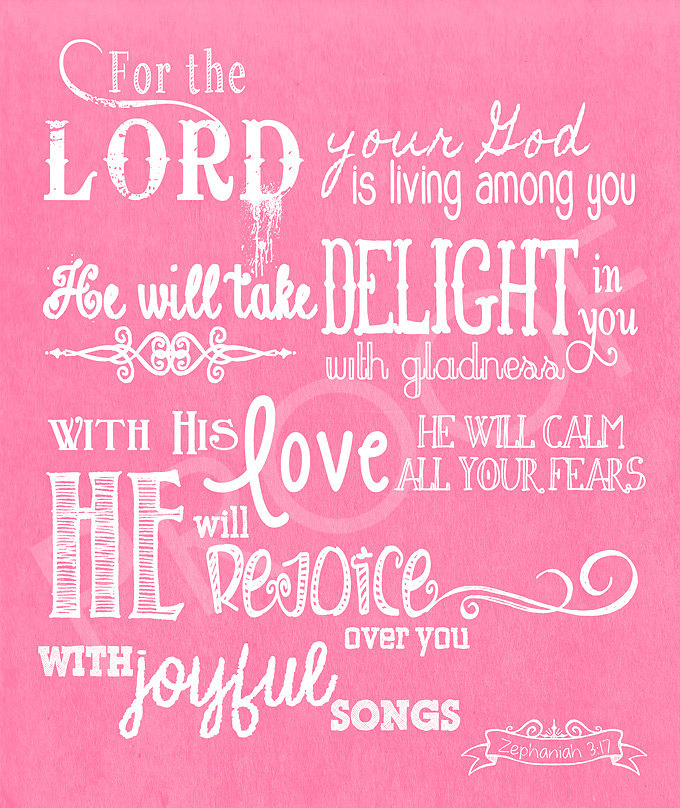 For the
LORD your God
is living among you
He will take DELIGHT in you
with gladness
WITH HIS love HE WILL CALM
ALL YOUR FEARS
HE will
REJOICE
over you
WITH joyful
SONGS
Zephaniah 3:17
PROOF